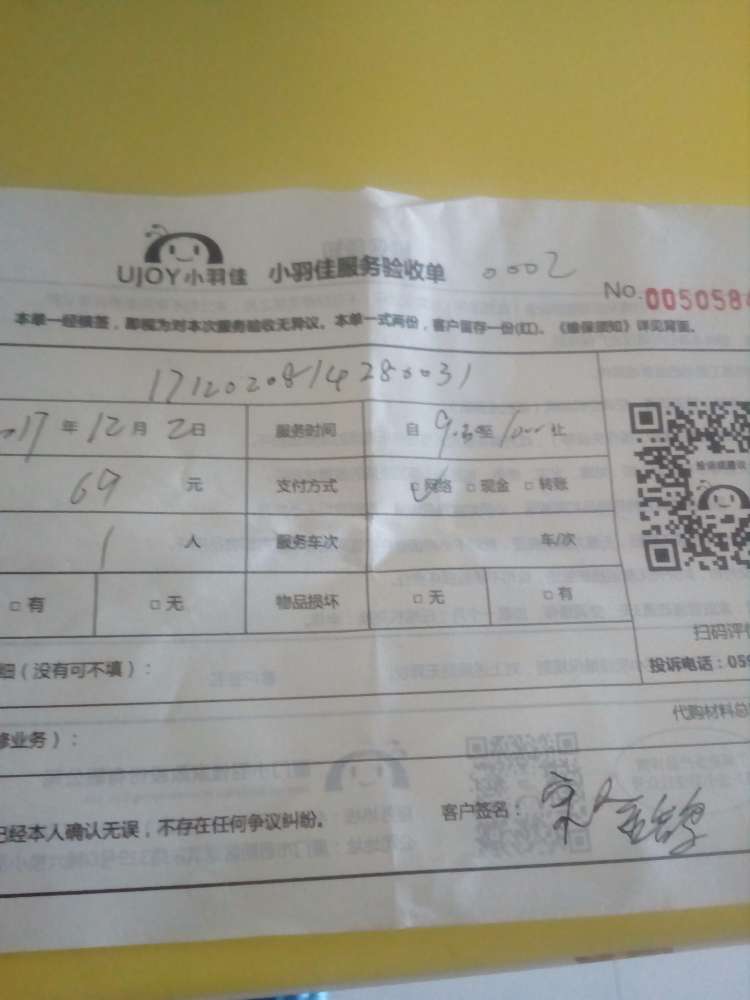 UJOY小羽佳 小羽佳服务验收单 0002
No. 0050584
本单一经横签，即视为对本次服务验收无异议。本单一式两份，客户留存一份(红)。《维保须知》详见背面。
17120208142800031
2017年12月2日 服务时间 自9:00至1000止
69元 支付方式 ☑网络 □现金 □转账
投诉或建议
1人 服务车次 车/次
□有 □无 物品损坏 □无 □有
扫码评价
细（没有可不填）： 投诉电话：059
代购材料总
修业务）：
已经本人确认无误，不存在任何争议纠纷。 客户签名：